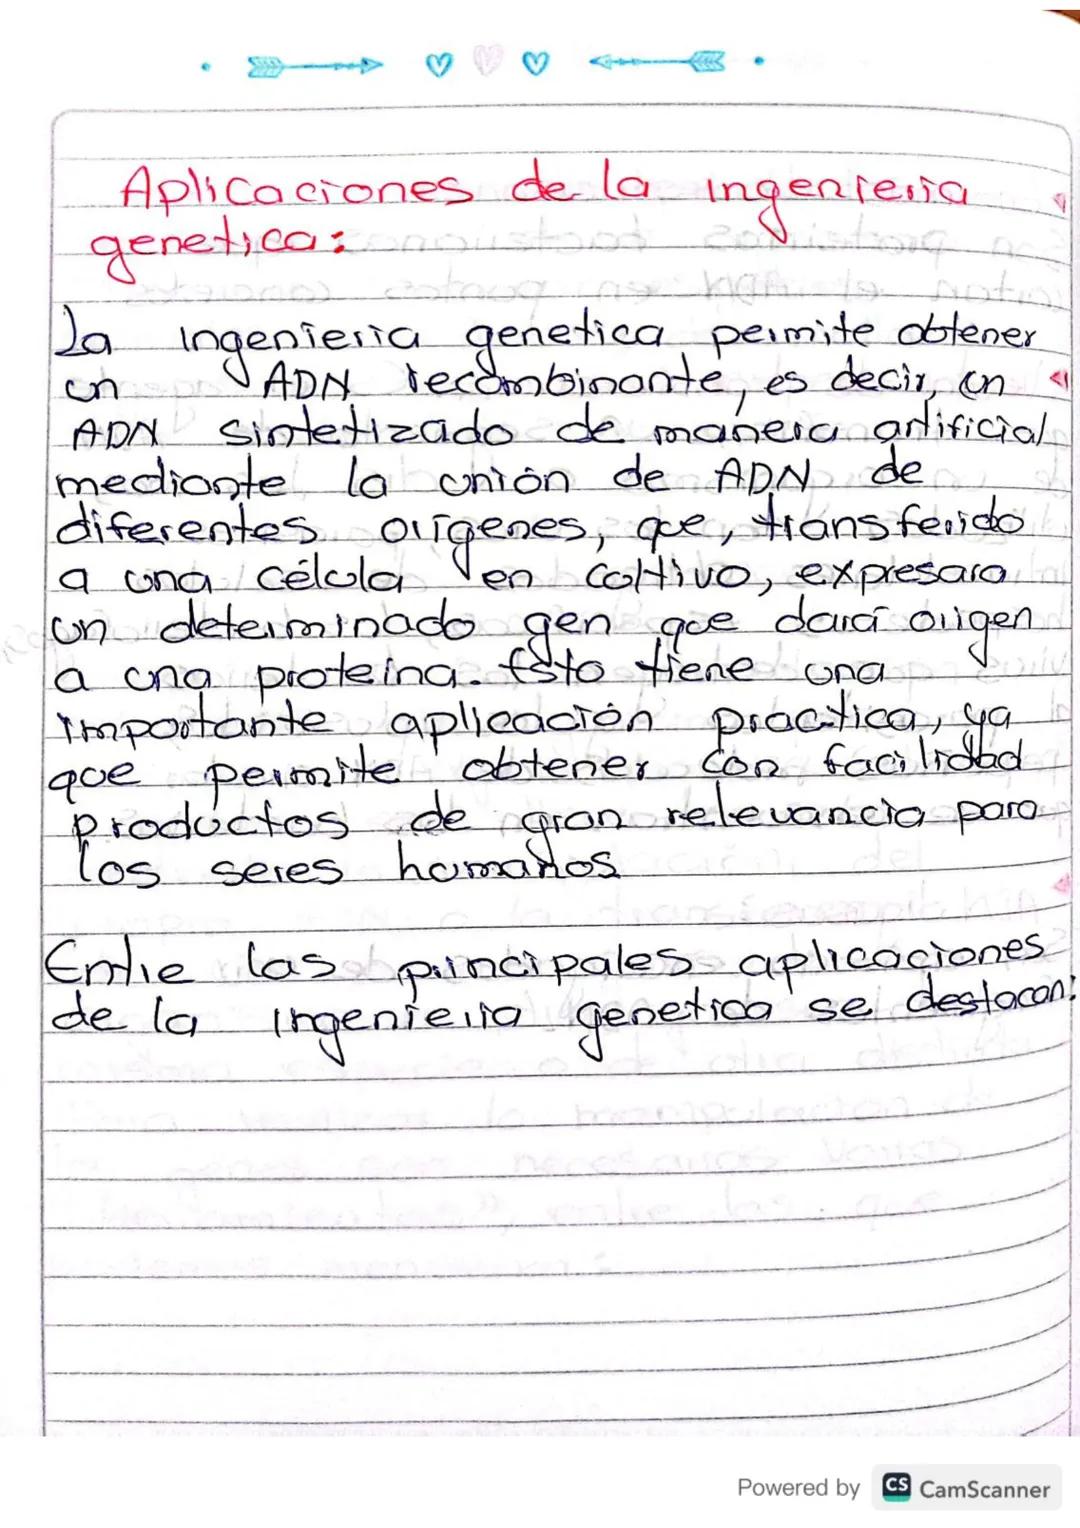 Aplicaciones de la ingenieria
genetica:
La ingenieria genetica permite obtener
un ADN recombinante, es decir, un
ADN sintetizado de manera artificial
mediante la unión de ADN de
diferentes orígenes, que, transferido
a una célula en cultivo, expresara
un determinado gen que dará origen
a una proteina. Esto tiene una
importante aplicación practica, ya
que permite obtener con facilidad
productos de gran relevancia para
los seres humanos
Entre las principales aplicaciones
de la ingenieria genetica se destacan:
Powered by CS CamScanner